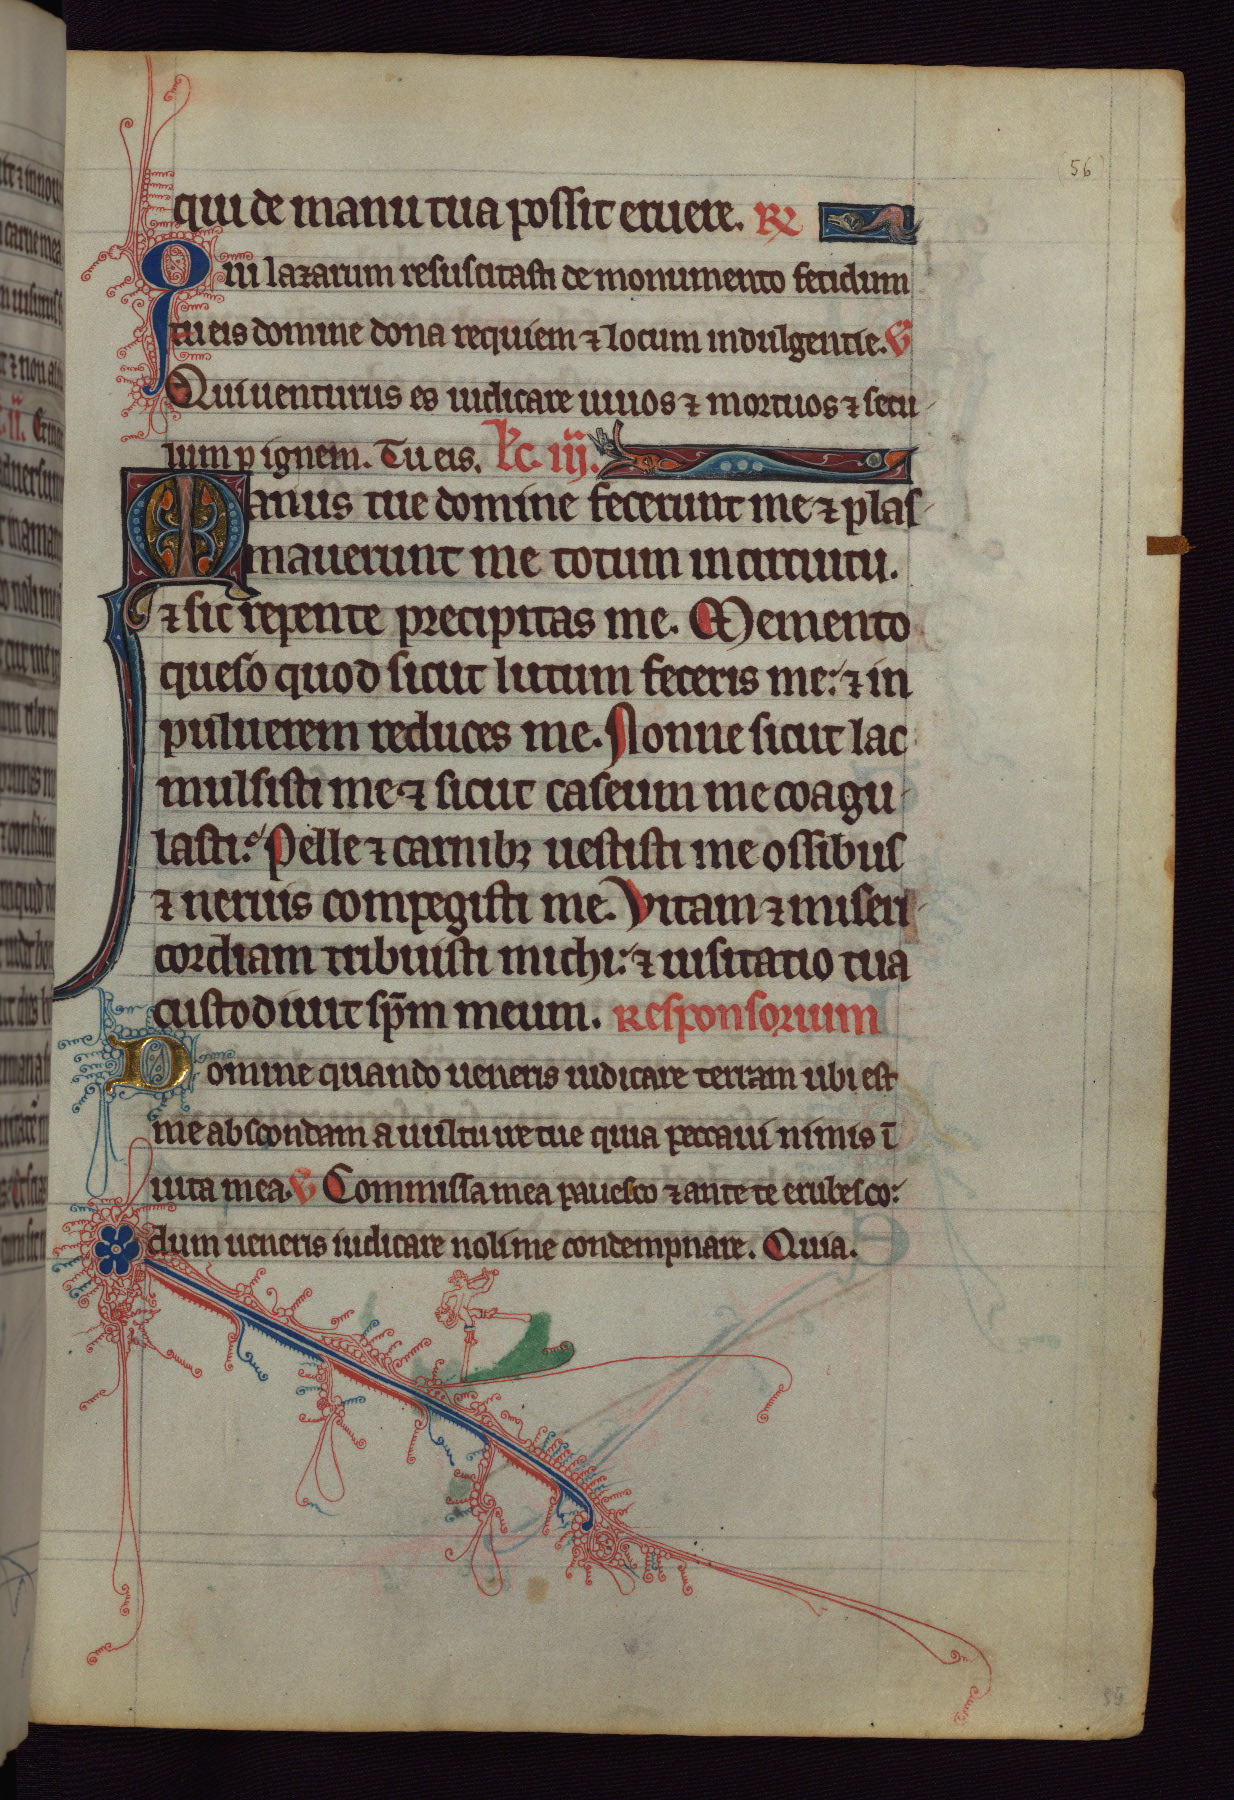 56
qui de manu tua possit eruere. R℟
Qui lazarum resuscitasti de monumento fetidum
tu eis domine dona requiem ⁊ locum indulgentie. ℣
Qui uenturus es iudicare uiuos ⁊ mortuos ⁊ secu
lum ꝑ ignem. Tu eis. Lc. iij.
Manus tue domine fecerunt me ⁊ plas
mauerunt me totum in circuitu.
⁊ sic repente precipitas me. Memento
queso quod sicut lutum feceris me: ⁊ in
puluerem reduces me. Nonne sicut lac
mulsisti me ⁊ sicut caseum me coagu
lasti: Pelle ⁊ carnibꝫ uestisti me ossibus
⁊ neruis compegisti me. Vitam ⁊ miseri
cordiam tribuisti michi: ⁊ uisitatio tua
custodiuit sp̄m meum. Responsorium
Domine quando ueneris iudicare terram ubi est
me abscondam a uultu ire tue quia peccaui nimis ī
uita mea. ℣ Commissa mea pauesco ⁊ ante te erubesco:
dum ueneris iudicare noli me contempnare. Quia.